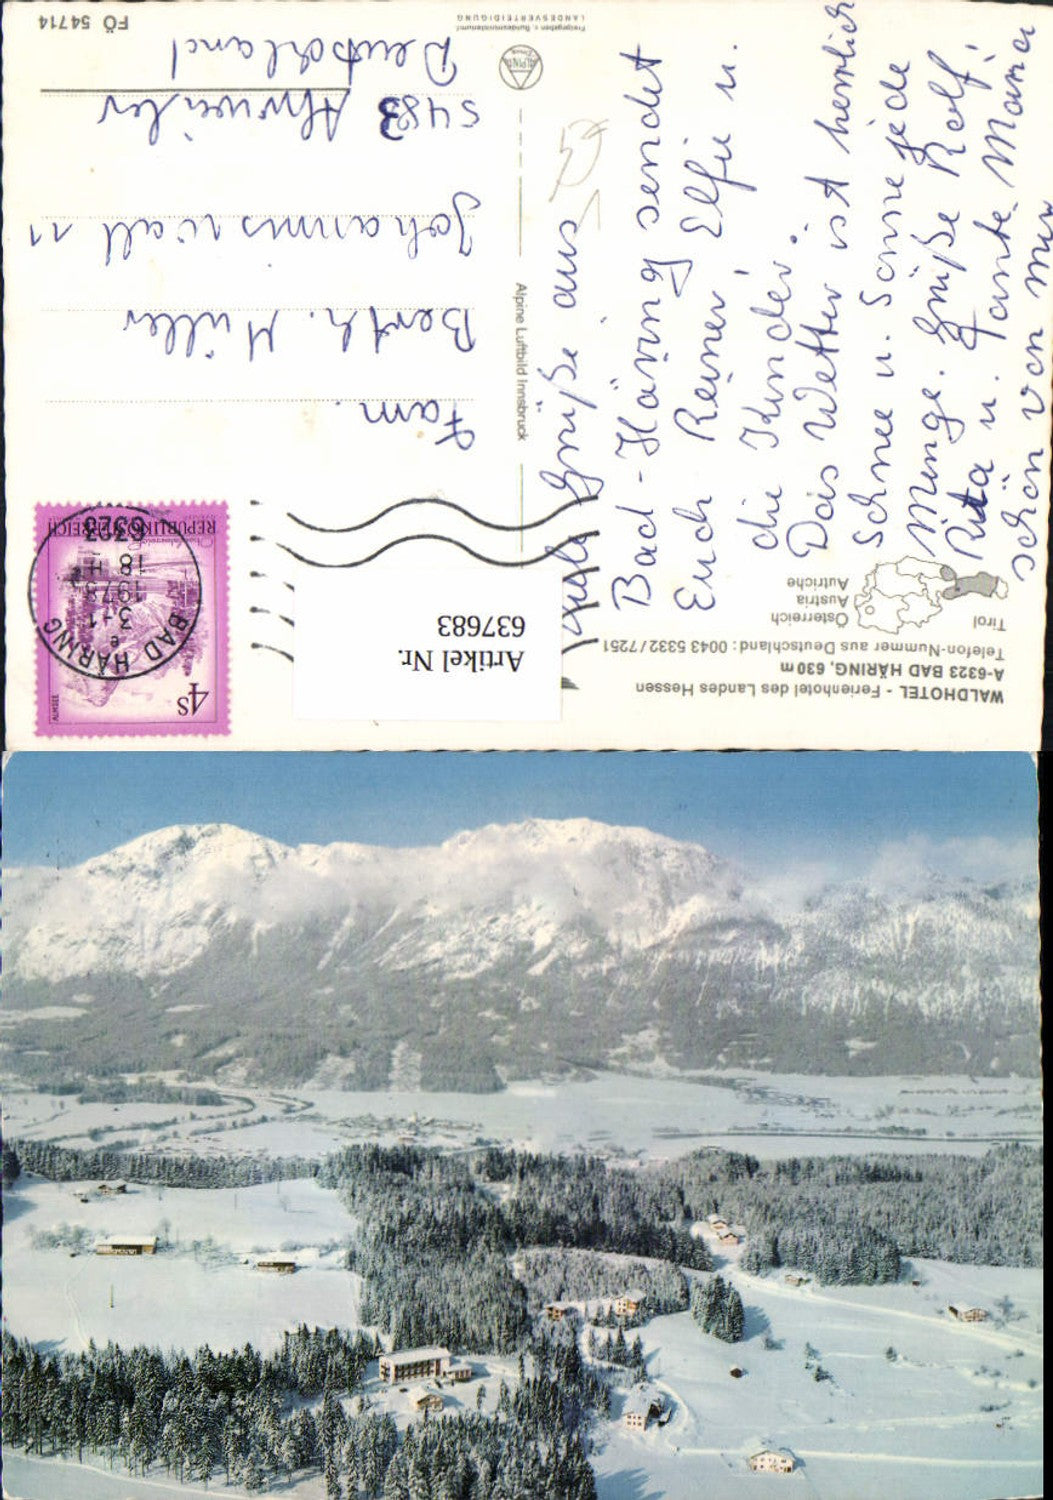 WALDHOTEL - Ferienhotel des Landes Hessen
A-6323 BAD HÄRING, 630 m
Telefon-Nummer aus Deutschland: 0043 5332/7251
Tirol
Österreich
Austria
Autriche
Artikel Nr.
637683
4S
ALMSEE
REPUBLIK ÖSTERREICH
BAD HÄRING
3-1
1978
18 H
6323
Viele Grüße aus
Bad-Häring sendet
Euch Reiner Elfie u.
die Kinder.
Das Wetter ist herrlich
Schnee u. Sonne jede
Menge. Grüße Rolf,
Rita u. Tante Maria
schön von mir
Fam.
Berth. Müller
Johanniswall 11
5483 Ahrweiler
Deutschland
Alpine Luftbild Innsbruck
ALPINE
Freigegeben v. Bundesministerium f.
LANDESVERTEIDIGUNG
FÖ 54714